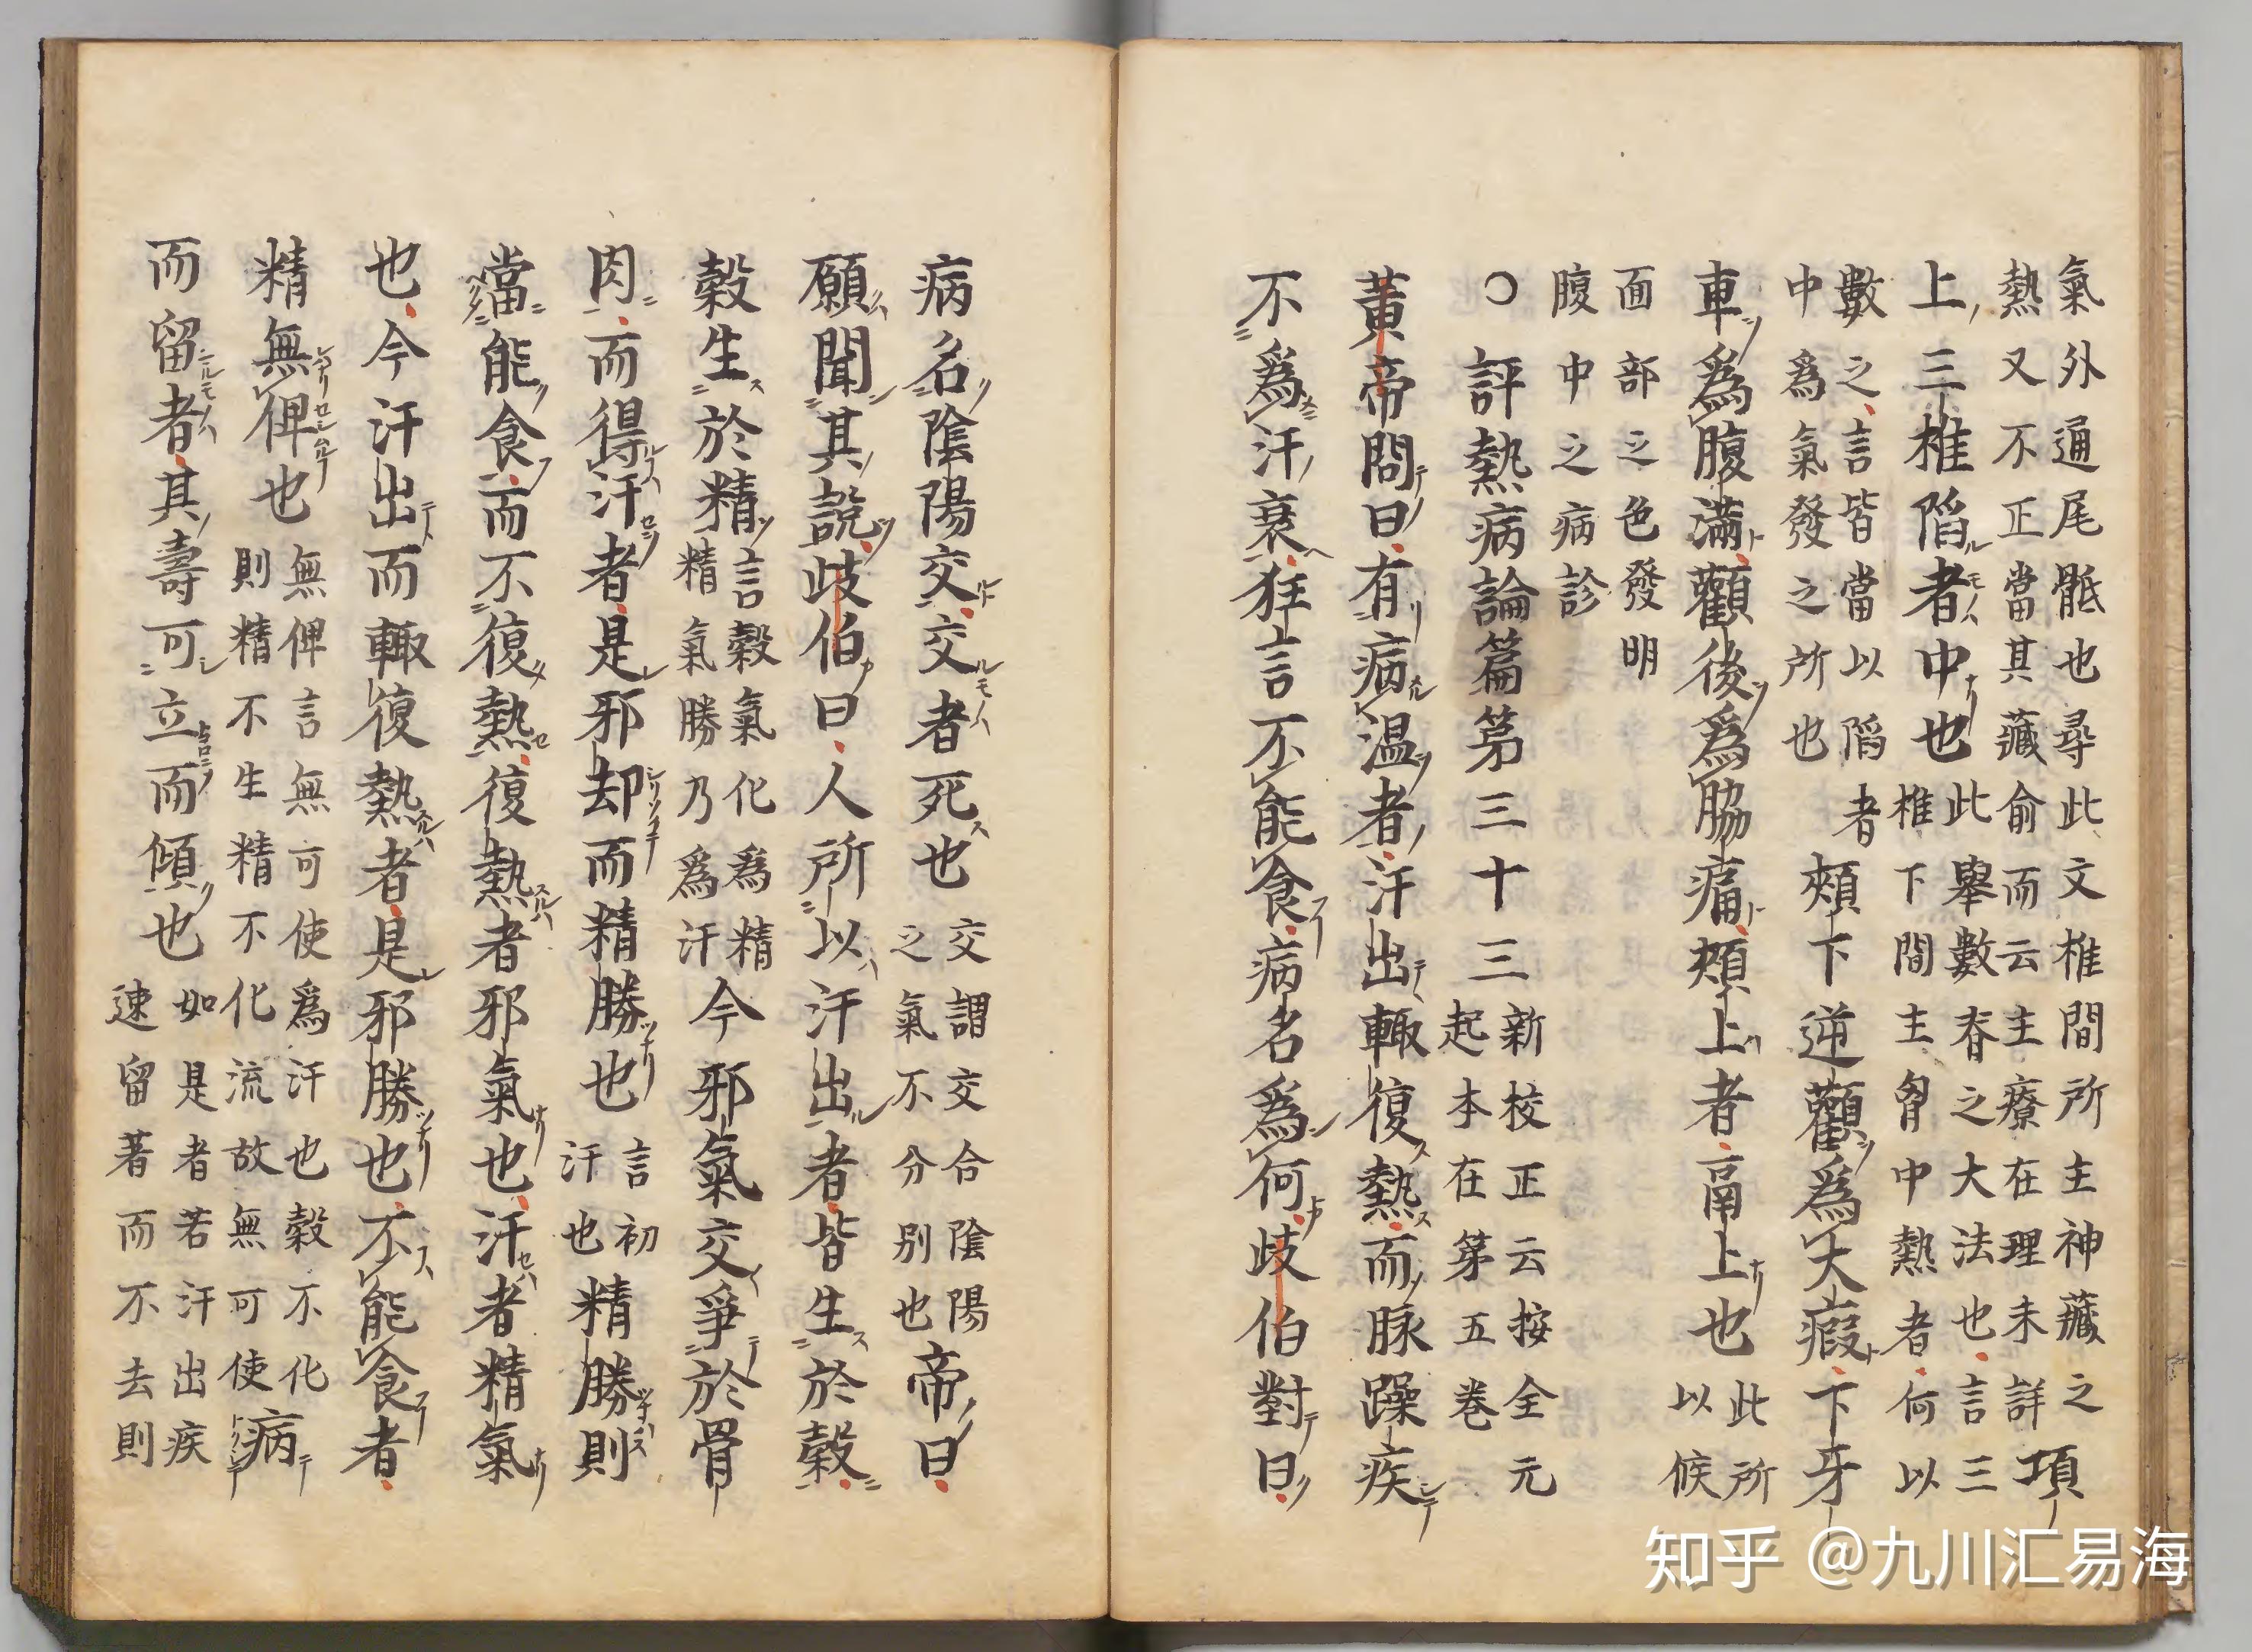 氣外通尾骶也尋此文椎間所主神藏之
熱又不正當其藏俞而云主療在理未詳
項
上三椎陷者中也
此舉數脊之大法也言三
椎下間主胷中熱者何以
數之言皆當以陷者
中爲氣發之所也
頰下逆顴爲大瘕下牙
車爲腹滿顴後爲脇痛頰上者鬲上也
此所
以候
面部之色發明
腹中之病診
○評熱病論篇第三十三
新校正云按全元
起本在第五巻
黃帝問曰有病温者汗出輙復熱而脉躁疾
不爲汗衰狂言不能食病名爲何歧伯對曰
病名陰陽交交者死也
交謂交合陰陽
之氣不分別也
帝曰
願聞其説歧伯曰人所以汗出者皆生於穀
穀生於精
言穀氣化爲精
精氣勝乃爲汗
今邪氣交爭於骨
肉而得汗者是邪却而精勝也
言初
汗也
精勝則
當能食而不復熱復熱者邪氣也汗者精氣
也今汗出而輙復熱者是邪勝也不能食者
精無俾也
無俾言無可使爲汗也穀不化
則精不生精不化流故無可使
病
而留者其壽可立而傾也
如是者若汗出疾
速留著而不去則
知乎 @九川汇易海